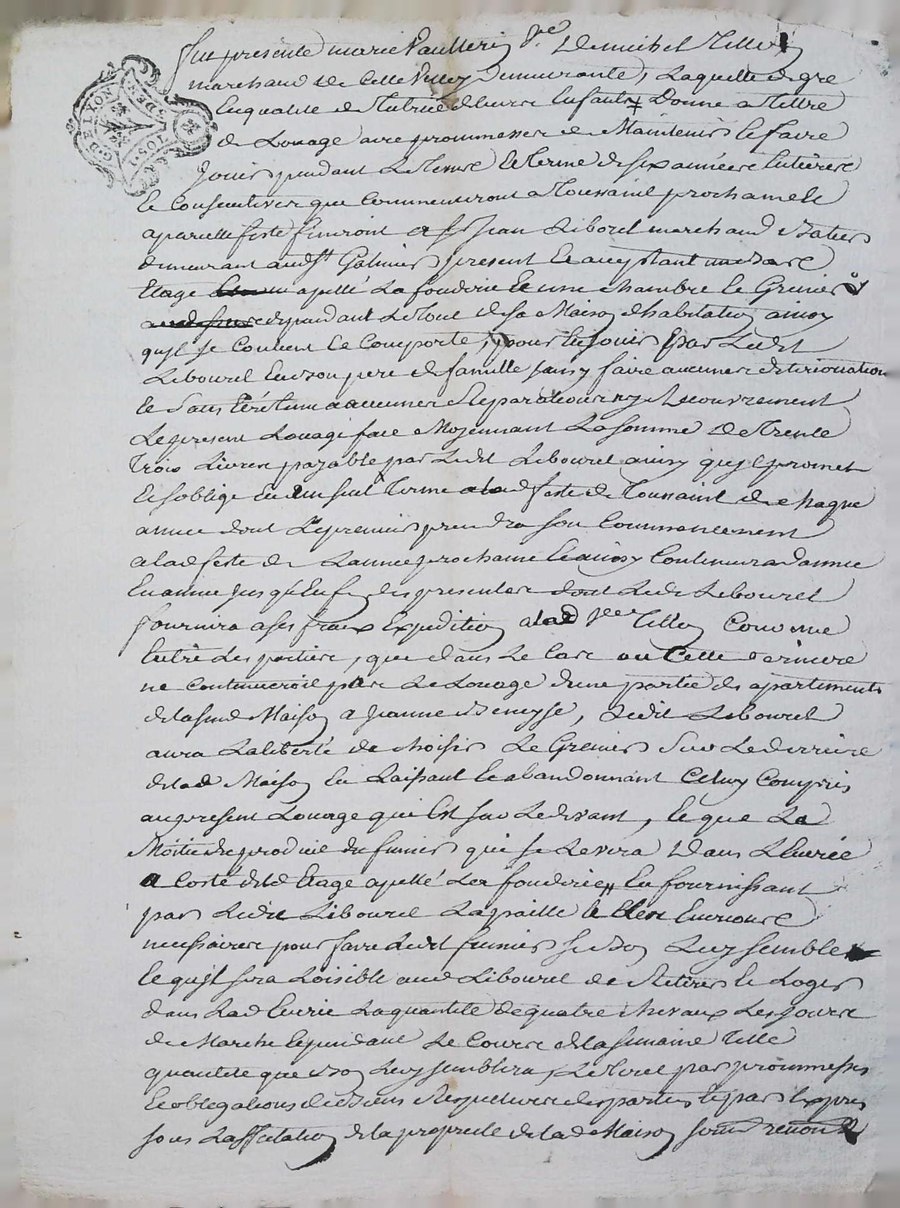 Fut presente marie Paulterin vve De michel Tillon
marchand de Cette Ville y demeurante, Laquelle de gre
En qualité de Tutrice de leurs Enfants Donne a Tiltre
de Louage avec promesses de Maintenir le faire
Jouir pendant Le Terme de six années Entieres
Et Consecutives que Commenceront a Toussaint prochaine Et
a pareille feste finiront a Sr Jean Libourel marchand
demeurant a St Galmier present Et acceptant
Etage apellé La fouderie Et une chambre Le Grenier
dependant Le Tout de sa Maison d'habitation ainsy
quil se Contient Et Comporte, pour En Jouir par Ledit
Libourel En bon pere de famille sans y faire aucunes deteriorations
Et Sans Estre tenu a aucunes Reparations ny Recouvrement
Le present Louage fait Moyennant La somme De Trente
Trois Livres payable par Ledit Libourel ainsy quil promet
Et soblige En un seul Terme a lad feste de Toussaint de chaque
annee dont Le premier prendra son Commencement
a lad feste de Lannee prochaine Et ainsy Continuera dannee
En annee jusqu'En fin des presentes dont Ledit Libourel
fournira a ses fraix Expedition a lad vve Tillon Convenu
Entre Les parties, que dans Le Cas ou Cette derniere
ne Continueroit pas Le Louage dune partie des apartements
de lasusd Maison a Jeanne, Ledit Libourel
aura La liberté de choisir Le Grenier Sur Le derriere
de lad Maison En Laissant Et abandonnant Celuy Compris
au present Louage qui Est sur Le devant, Et que La
Moitié du produit du fumier qui se Levera Dans L'Ecurie
a Costé dud Etage apellé Les fouderies En fournissant
par Ledit Libourel La paille
necessaires pour faire Ledit fumier si bon Luy semble
Et quil sera Loisible aud Libourel de Retirer Et Loger
dans Lad Ecurie La quantité de quatre chevaux Les Jours
de Marché Et pendant Le Cours de la semaine Telle
quantité que bon Luy semblera, Le Tout par promesses
Et obligations de Biens Respectives des parties Et par Expres
sous Laffectation de la proprieté de lad Maison soumis renon